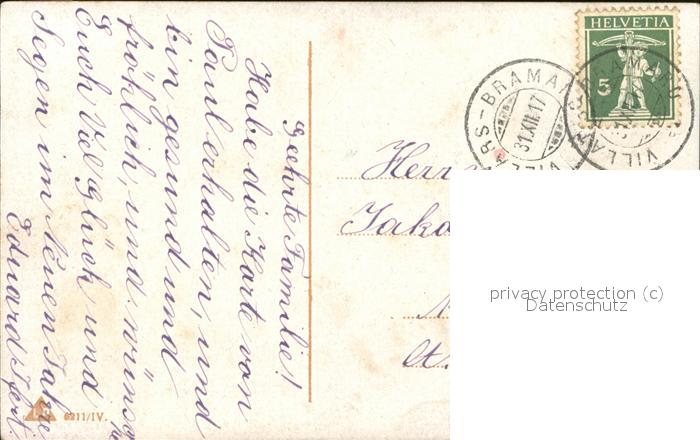 Geehrte Familie!
Habe die Karte von
Paul erhalten, und
bin gesund und
fröhlich, und wünsche
Euch viel Glück und
Segen im Neuen Jahre
Eduard
Herrn
Jako
HELVETIA
5
VILLARS-BRAMA
31.XII.17
VILLARS-BRAMA
6211/IV.
privacy protection (c)
Datenschutz